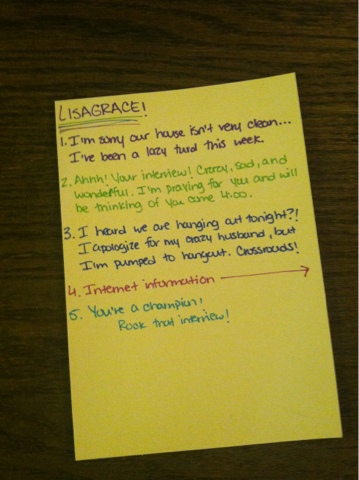 LISAGRACE!
1. I'm sorry our house isn't very clean...
I've been a lazy turd this week.
2. Ahhh! Your interview! Crazy, sad, and
wonderful. I'm praying for you and will
be thinking of you come 4:00.
3. I heard we are hanging out tonight?!
I apologize for my crazy husband, but
I'm pumped to hangout. Crossroads!
4. Internet information →
5. You're a champion!
Rock that interview!